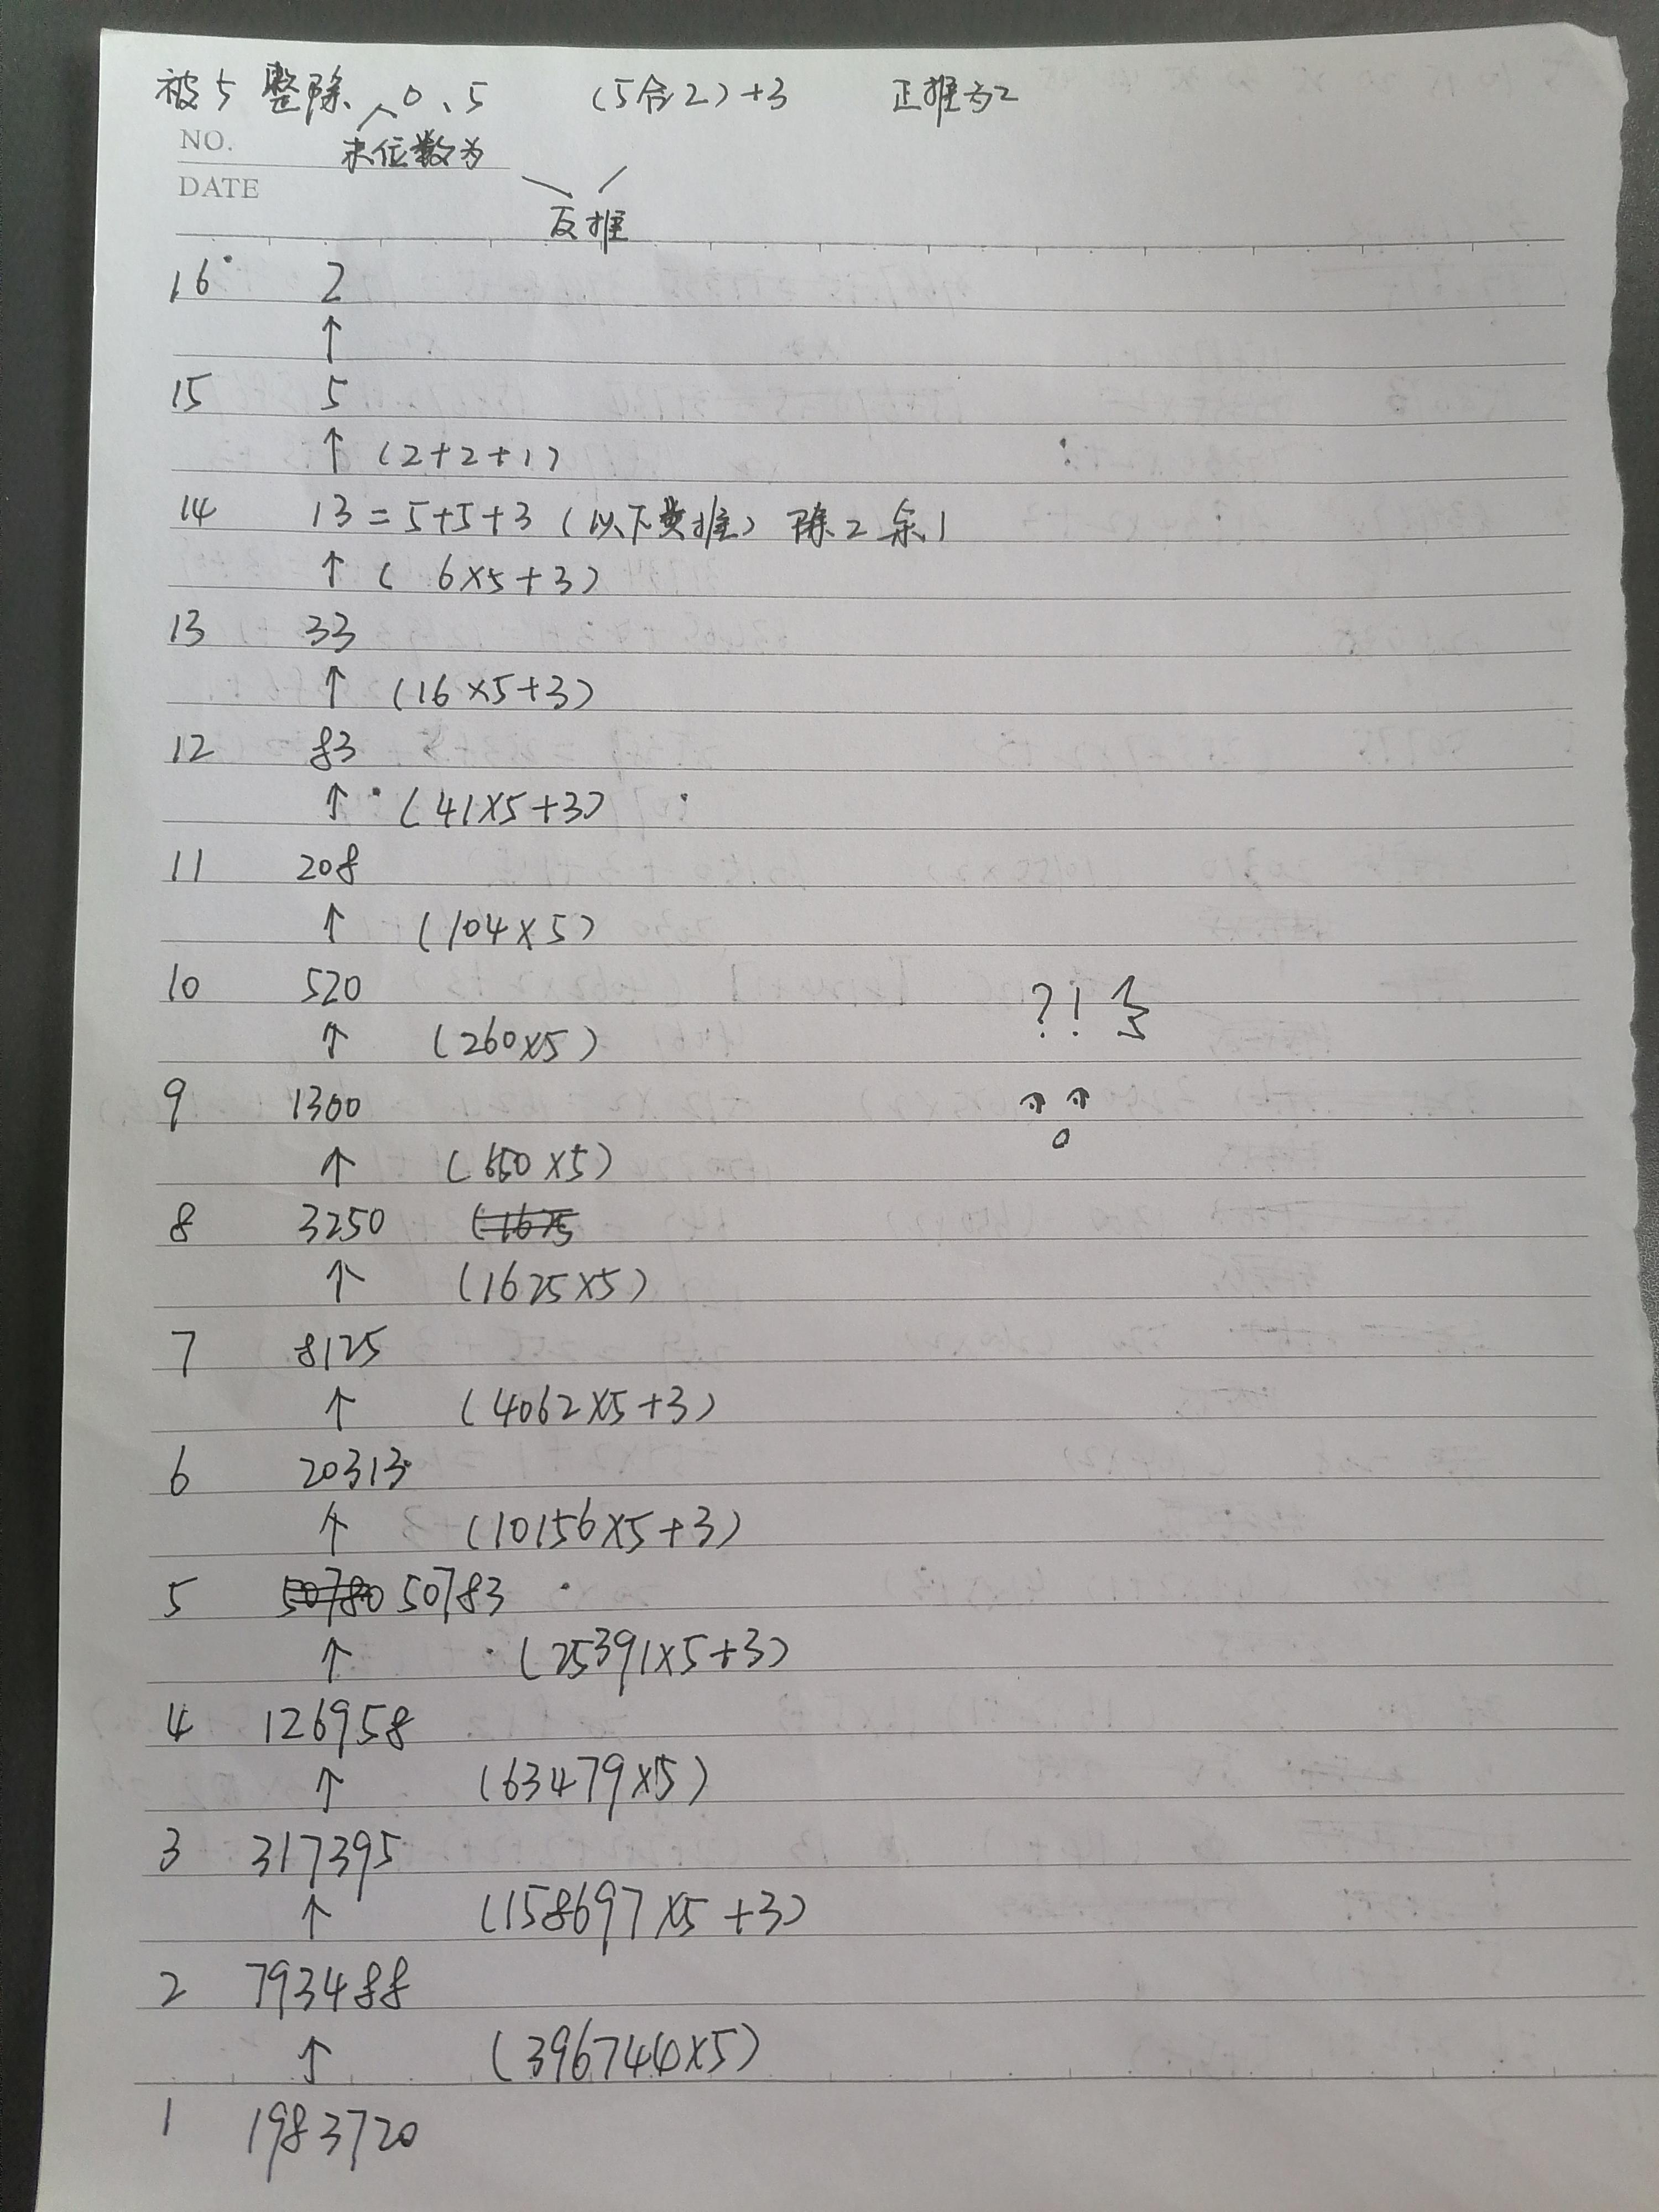 被5整除、0、5 (5合2)+3 正推为2
NO. 末位数为
DATE
反推
16 2
↑
15 5
↑ (2+2+1)
14 13=5+5+3 (以下类推) 除2余1
↑ ( 6×5+3)
13 33
↑ (16×5+3)
12 83
↑ (41×5+3)
11 208
↑ (104×5)
10 520 ?!
↑ (260×5)
9 1300
↑ (650×5)
8 3250 (1675
↑ (1625×5)
7 8125
↑ (4062×5+3)
6 20313
↑ (10156×5+3)
5 50780 50783
↑ (25391×5+3)
4 126958
↑ (63479×5)
3 317395
↑ (158697×5+3)
2 793488
↑ (396744×5)
1 1983720